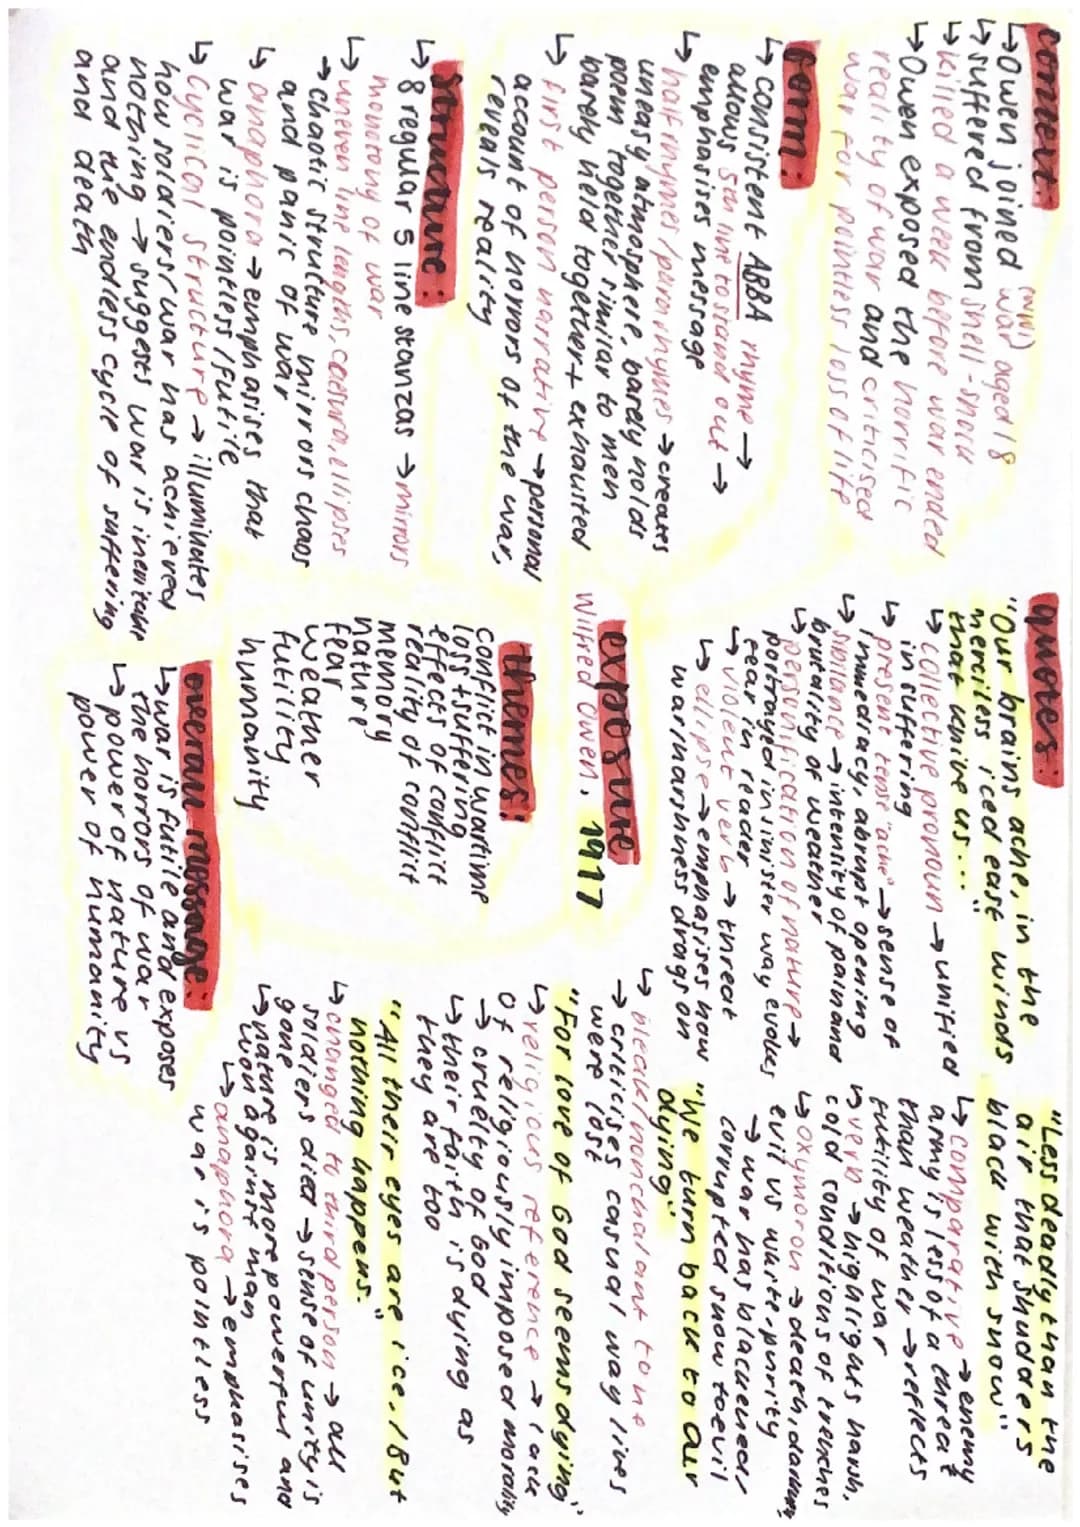 context:
↳ Owen joined (WW1) war aged 18
↳ suffered from shell-shock
↳ killed a week before war ended
↳ Owen exposed the horrific
reality of war and criticised
war for pointless loss of life
form:
↳ consistent ABBA rhyme →
allows 5th line to stand out →
emphasises message
↳ half rhymes/pararhymes → creates
uneasy atmosphere, barely holds
poem together similar to men
barely held together + exhausted
↳ first person narrative → personal
account of horrors of the war,
reveals reality
structure:
↳ 8 regular 5 line stanzas → mirrors
monotony of war
↳ uneven line lengths, cesura, ellipses
→ chaotic structure mirrors chaos
and panic of war
↳ anaphora → emphasises that
war is pointless/futile
↳ cyclical structure → illuminates
how soldiers/war has achieved
nothing → suggests war is inevitable
and the endless cycle of suffering
and death
exposure
Wilfred Owen, 1917
themes:
conflict in wartime
loss + suffering
effects of conflict
reality of conflict
memory
nature
fear
weather
futility
humanity
overall message:
↳ war is futile and exposes
the horrors of war
↳ power of nature vs
power of humanity
quotes:
"Our brains ache, in the
merciless iced east winds
that knive us..."
↳ collective pronoun → unified
in suffering
↳ present tense "ache" → sense of
immediacy, abrupt opening
↳ sibilance → intensity of pain and
brutality of weather
↳ personification of nature →
portrayed in sinister way evokes
fear in reader
↳ violent verb → threat
↳ ellipse → emphasises how
war harshness drags on
"Less deadly than the
air that shudders
black with snow"
↳ comparative → enemy
army is less of a threat
than weather → reflects
futility of war
↳ verb → highlights harsh,
cold conditions of trenches
↳ oxymoron → death, darkness,
evil vs white, purity
→ war has blackened/
corrupted snow to evil
"We turn back to our
dying"
↳ bleak/nonchalant tone
→ criticises casual way lives
were lost
"For love of God seems dying"
↳ religious reference → lack
of religiously imposed morality
→ cruelty of God
↳ their faith is dying as
they are too
"All their eyes are ice, / But
nothing happens."
↳ changed to third person → all
soldiers died → sense of unity is
gone
↳ nature is more powerful and
won against man
↳ anaphora → emphasises
war is pointless